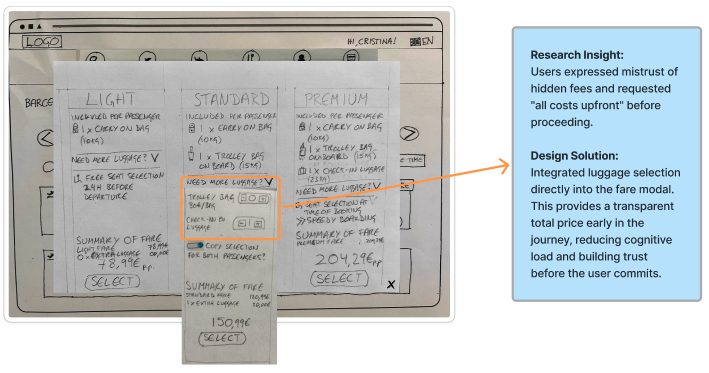 LOGO
HI, CRISTINA!
EN
BARCE
LIGHT
INCLUDED PER PASSENGER
1 x CARRY ON BAG
(10KG)
NEED MORE LUGGAGE? V
FREE SEAT SELECTION
24H BEFORE
DEPARTURE
SUMMARY OF FARE
LIGHT FARE 78,99€
0 x EXTRA LUGGAGE 00,00€
78,99€ p.p.
SELECT
STANDARD
INCLUDED PER PASSENGER
1 x CARRY ON BAG
(10KG)
1 x TROLLEY BAG
ON BOARD (15KG)
NEED MORE LUGGAGE? V
TROLLEY BAG
- 0 +
CHECK-IN
LUGGAGE
- 1 +
COPY SELECTION
FOR BOTH PASSENGERS?
SUMMARY OF FARE
STANDARD FARE
1 x EXTRA LUGGAGE
150,99€
SELECT
PREMIUM
INCLUDED PER PASSENGER
1 x CARRY ON BAG
(10KG)
1 x TROLLEY BAG
ONBOARD (15KG)
1 x CHECK-IN LUGGAGE
(23KG)
NEED MORE LUGGAGE? V
SEAT SELECTION AT
TIME OF BOOKING
SPEEDY BOARDING
SUMMARY OF FARE
PREMIUM FARE
204,29€ p.p.
SELECT
X
E TIME
Research Insight:
Users expressed mistrust of
hidden fees and requested
"all costs upfront" before
proceeding.
Design Solution:
Integrated luggage selection
directly into the fare modal.
This provides a transparent
total price early in the
journey, reducing cognitive
load and building trust
before the user commits.